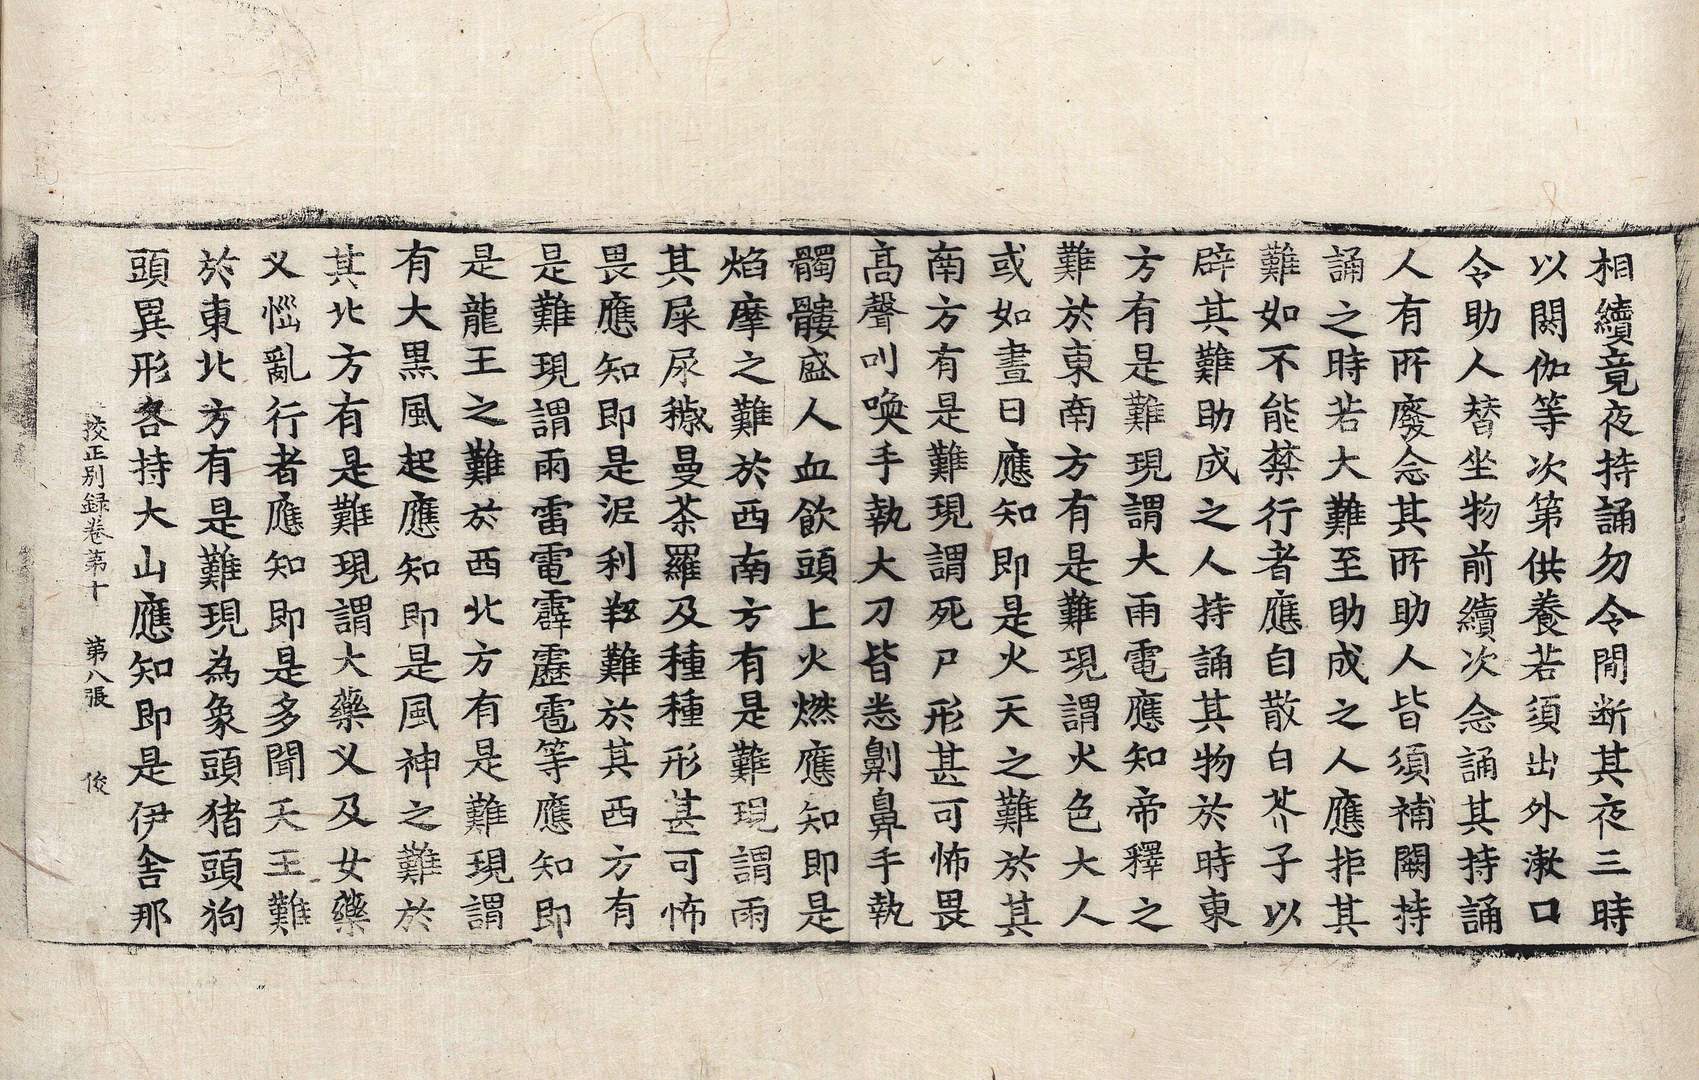 相續竟夜持誦勿令閒断其夜三時
以閼伽等次第供養若須出外漱口
令助人替坐物前續次念誦其持誦
人有所廢念其所助人皆須補闕持
誦之時若大難至助成之人應拒其
難如不能禁行者應自散白芥子以
辟其難助成之人持誦其物於時東
方有是難現謂大雨電應知帝釋之
難於東南方有是難現謂火色大人
或如晝日應知即是火天之難於其
南方有是難現謂死尸形甚可怖畏
高聲叫喚手執大刀皆悉劓鼻手執
髑髏盛人血飲頭上火燃應知即是
焰摩之難於西南方有是難現謂雨
其屎尿穢曼荼羅及種種形甚可怖
畏應知即是泥利羚難於其西方有
是難現謂雨雷電霹靂雹等應知即
是龍王之難於西北方有是難現謂
有大黒風起應知即是風神之難於
其北方有是難現謂大藥叉及女藥
叉惱亂行者應知即是多聞天王難
於東北方有是難現為象頭猪頭狗
頭異形各持大山應知即是伊舍那
挍正別録卷第十 第八張 俊